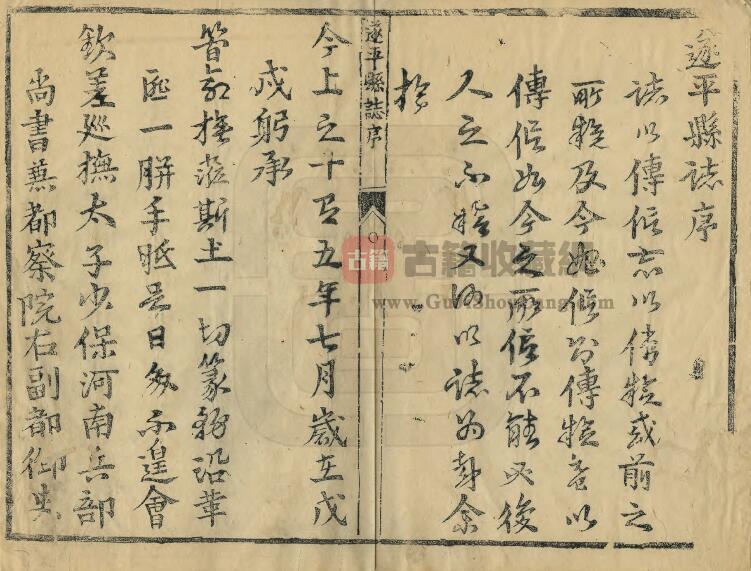 遂平縣誌序
誌以傳信亦以傳疑或前之
所疑及今如信則傳疑意以
傳信如今之所信不能必後
人之不疑又何以誌為余
於
遂平縣誌序
今上之十有五年七月歲在戊
戌躬承
命撫蒞斯土一切篆務沿革
匪一胼手胝足日夕不遑會
欽差巡撫太子少保河南兵部
尚書兼都察院右副都御史
古籍
古籍收藏網